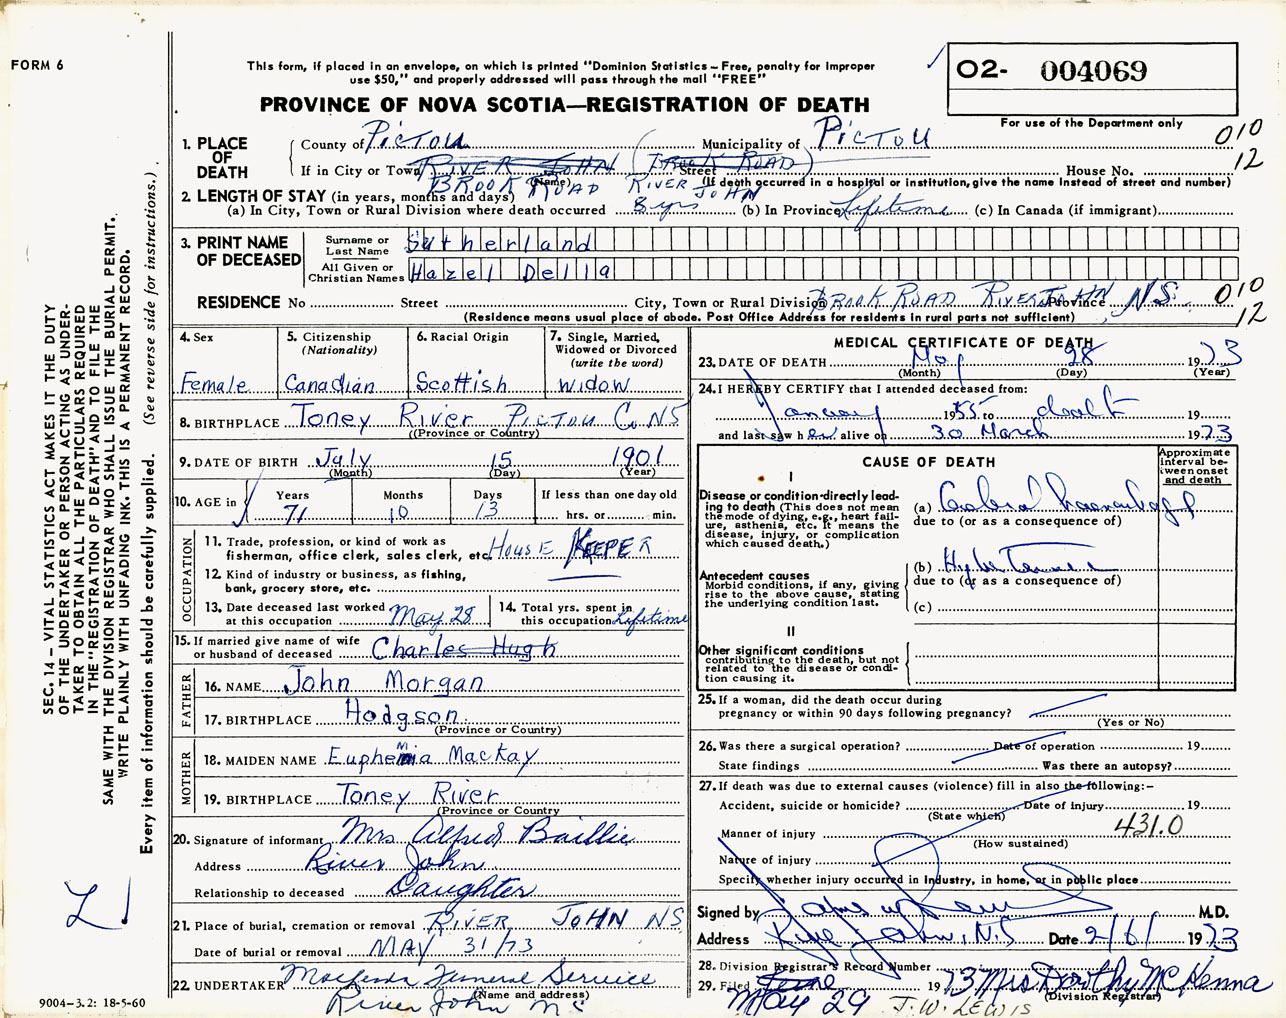 FORM 6
This form, if placed in an envelope, on which is printed "Dominion Statistics – Free, penalty for improper
use $50," and properly addressed will pass through the mail "FREE"
PROVINCE OF NOVA SCOTIA—REGISTRATION OF DEATH
✓ 02- 004069
For use of the Department only
010
12
1. PLACE OF DEATH
County of Pictou Municipality of PICTOU
If in City or Town RIVER JOHN (BROOK ROAD) Street House No.
BROOK ROAD RIVER JOHN
(Name) (If death occurred in a hospital or institution, give the name instead of street and number)
2. LENGTH OF STAY (in years, months and days)
(a) In City, Town or Rural Division where death occurred 8 yrs (b) In Province Lifetime (c) In Canada (if immigrant)
3. PRINT NAME OF DECEASED
Surname or Last Name Sutherland
All Given or Christian Names Hazel Della
RESIDENCE No Street City, Town or Rural Division BROOK ROAD RIVER JOHN Province N.S. 010
12
(Residence means usual place of abode. Post Office Address for residents in rural parts not sufficient)
4. Sex Female
5. Citizenship (Nationality) Canadian
6. Racial Origin Scottish
7. Single, Married, Widowed or Divorced (write the word) Widow
8. BIRTHPLACE Toney River PICTOU Co. NS
(Province or Country)
9. DATE OF BIRTH July 15 1901
(Month) (Day) (Year)
10. AGE in Years 71 Months 10 Days 13 If less than one day old hrs. or min.
OCCUPATION
11. Trade, profession, or kind of work as
fisherman, office clerk, sales clerk, etc. HOUSE KEEPER
12. Kind of industry or business, as fishing,
bank, grocery store, etc.
13. Date deceased last worked at this occupation May 28
14. Total yrs. spent in this occupation Lifetime
15. If married give name of wife
or husband of deceased Charles Hugh
FATHER
16. NAME John Morgan
17. BIRTHPLACE Hodgson
(Province or Country)
MOTHER
18. MAIDEN NAME Euphemia MacKay
19. BIRTHPLACE Toney River
(Province or Country
20. Signature of informant Mrs Alfred Baillie
Address River John
Relationship to deceased Daughter
21. Place of burial, cremation or removal RIVER JOHN NS
Date of burial or removal MAY 31/73
22. UNDERTAKER Funeral Service
(Name and address)
River John NS
MEDICAL CERTIFICATE OF DEATH
23. DATE OF DEATH May 28 1973
(Month) (Day) (Year)
24. I HEREBY CERTIFY that I attended deceased from:
January 1955 to death 19
and last saw her alive on 30 March 1973
CAUSE OF DEATH
Approximate interval between onset and death
I
Disease or condition directly leading to death (This does not mean the mode of dying, e.g., heart failure, asthenia, etc. It means the disease, injury, or complication which caused death.)
(a) Cerebral haemorrhage
due to (or as a consequence of)
Antecedent causes
Morbid conditions, if any, giving rise to the above cause, stating the underlying condition last.
(b) Hypertension
due to (or as a consequence of)
(c)
II
Other significant conditions
contributing to the death, but not related to the disease or condition causing it.
25. If a woman, did the death occur during
pregnancy or within 90 days following pregnancy?
(Yes or No)
26. Was there a surgical operation? Date of operation 19
State findings Was there an autopsy?
27. If death was due to external causes (violence) fill in also the following:–
Accident, suicide or homicide? Date of injury 19
(State which)
Manner of injury 431.0
(How sustained)
Nature of injury
Specify whether injury occurred in industry, in home, or in public place
Signed by M.D.
Address River John, N.S Date 2/6/ 1973
28. Division Registrar's Record Number
29. Filed June 1973 Mrs Dorothy McKenna
May 29 (Division Registrar)
J.W. LEWIS
SEC. 14 – VITAL STATISTICS ACT MAKES IT THE DUTY
OF THE UNDERTAKER OR PERSON ACTING AS UNDER-
TAKER TO OBTAIN ALL THE PARTICULARS REQUIRED
IN THE "REGISTRATION OF DEATH" AND TO FILE THE
SAME WITH THE DIVISION REGISTRAR WHO SHALL ISSUE THE BURIAL PERMIT.
WRITE PLAINLY WITH UNFADING INK. THIS IS A PERMANENT RECORD.
Every item of information should be carefully supplied. (See reverse side for instructions.)
9004–3.2: 18-5-60